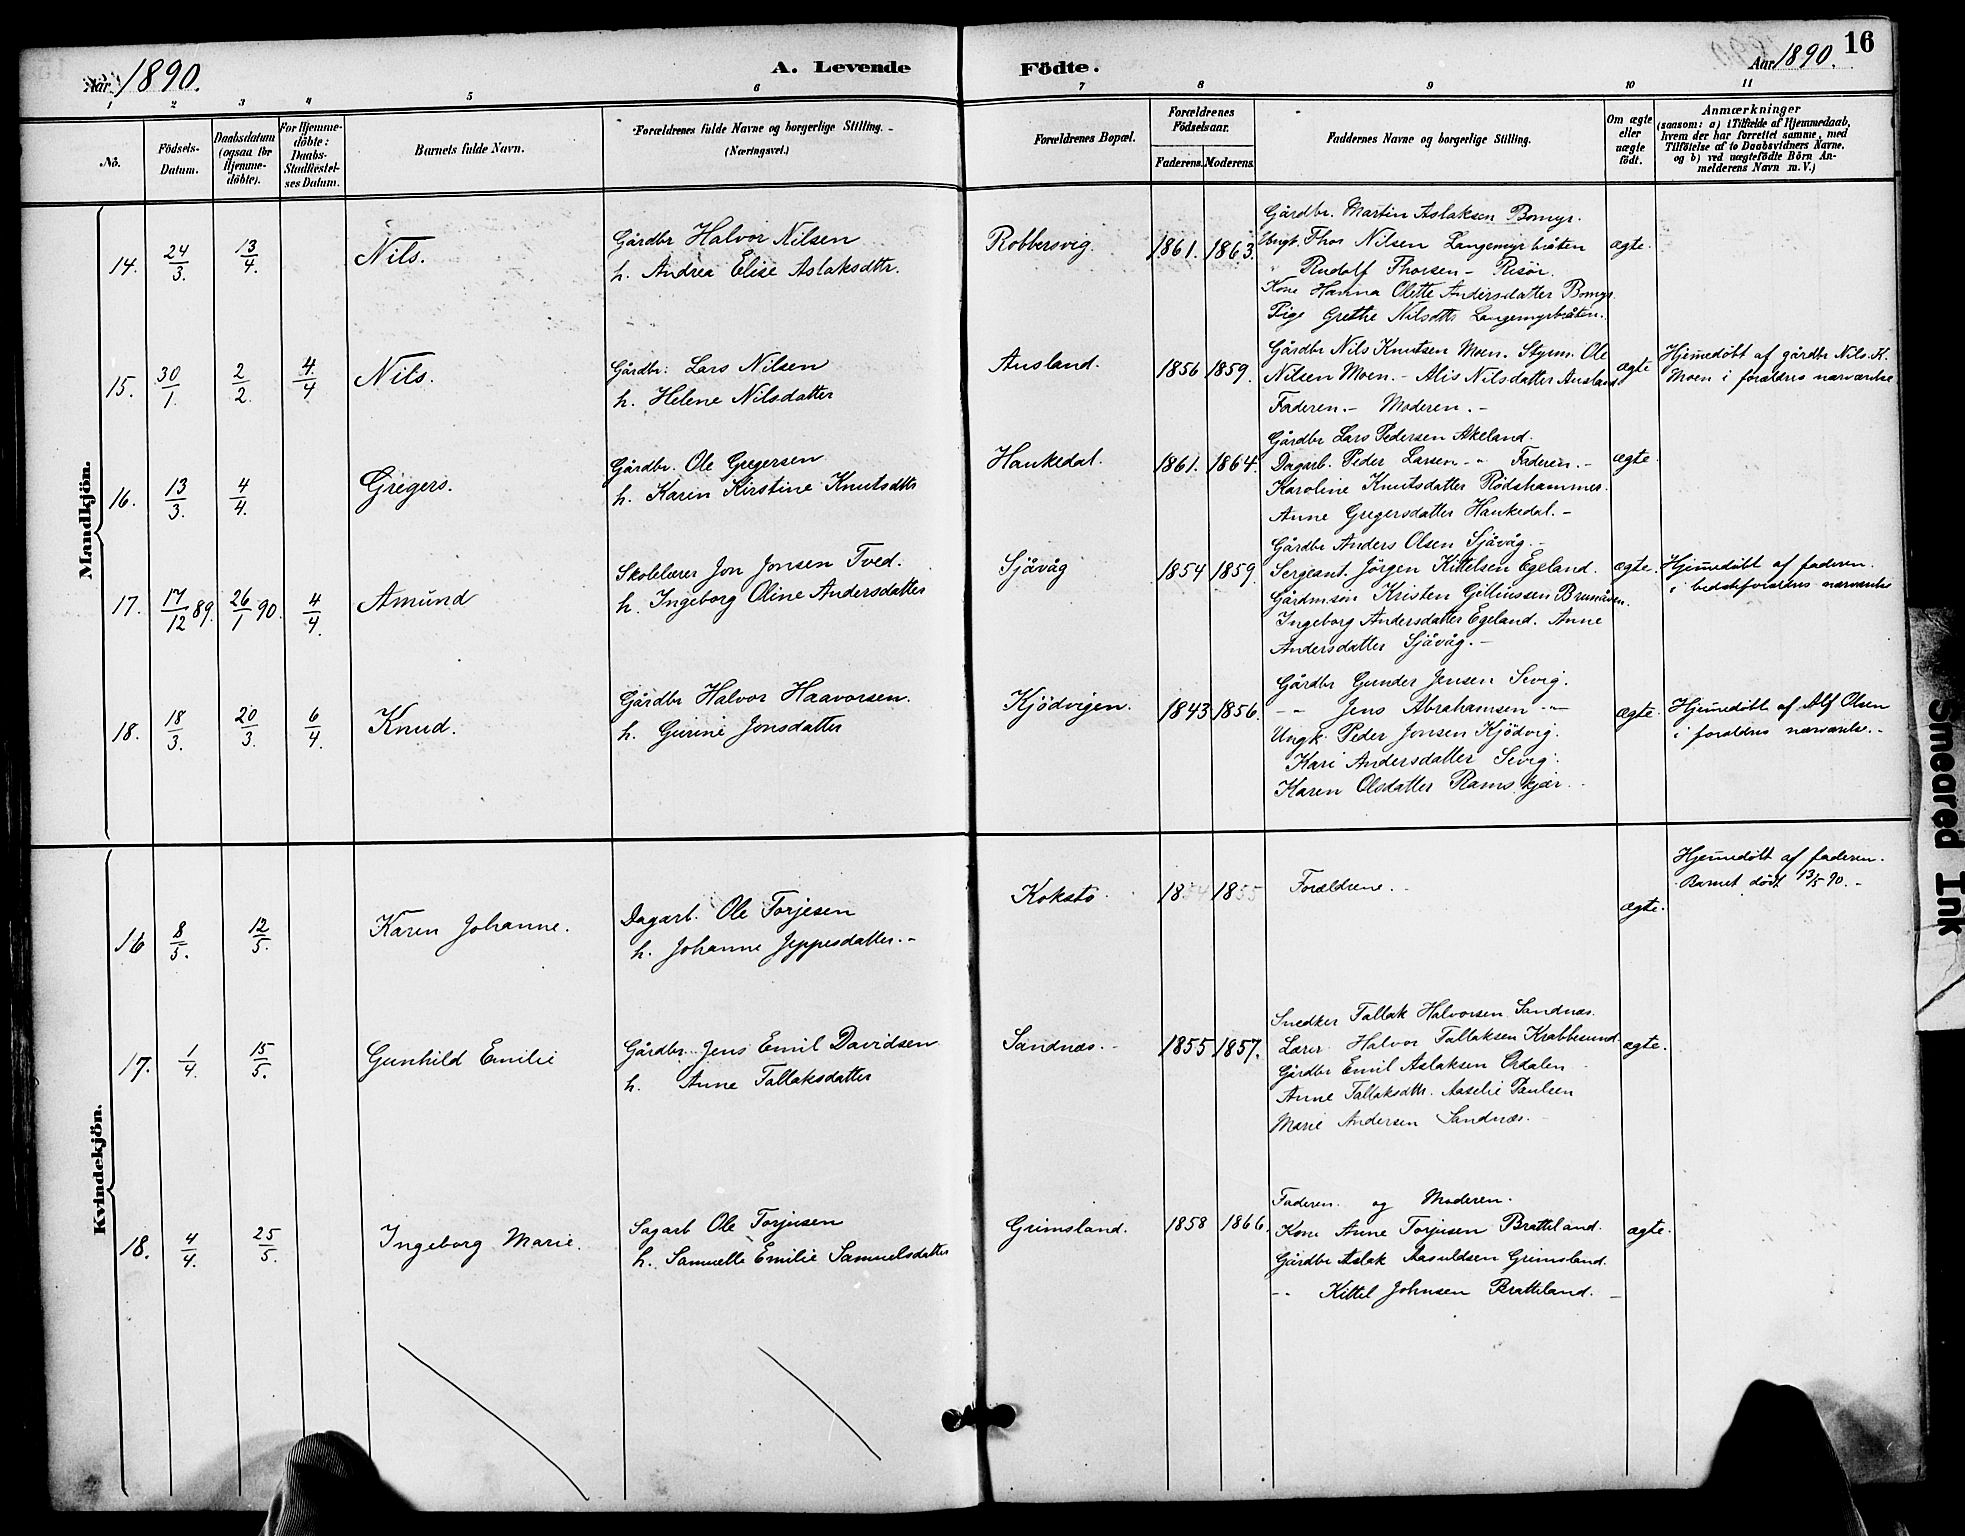 Aar 1890.
A. Levende Födte.
Aar 1890.
16
1 2 3 4 5 6 7 8 9 10 11
No.
Födsels-Datum.
Daabsdatum (ogsaa for Hjemme-döbte).
For Hjemme-döbte: Daabs-Stadfæstel-ses Datum.
Barnets fulde Navn.
Forældrenes fulde Navne og borgerlige Stilling. (Næringsvei.)
Forældrenes Bopæl.
Forældrenes Födselsaar.
Faderens. Moderens.
Faddernes Navne og borgerlige Stilling.
Om ægte eller uægte födt.
Anmærkninger
(saasom: a) i Tilfælde af Hjemmedaab,
hvem der har forrettet samme, med
Tilföielse af to Daabsvidners Navne,
og b) ved uægtefödte Börn An-
melderens Navn m. V.)
Mandkjön.
14. 24/3. 13/4. Nils.
Gårdbr Halvor Nilsen
h. Andrea Elise Aslaksdtr.
Robbersvig. 1861. 1863.
Gårdbr. Martin Aslaksen Bomyr.
Ungk. Thor Nilsen Langemyrbråten
" Rudolf Thorsen - Risör.
Kone Hanna Olette Andersdatter Bomyr.
Pige Grethe Nilsdtr Langemyrbråten.
ægte.
15. 30/1. 2/2. 4/4 Nils.
Gårdbr: Lars Nilsen
h. Helene Nilsdatter
Ausland. 1856 1859.
Gårdbr Nils Knutsen Moen. Styrm. Ole
Nilsen Moen. - Alis Nilsdatter Ausland
Faderen. - Moderen. -
ægte
Hjemmedöbt af gårdbr Nils K.
Moen i forældres nærværelse
16. 13/3. 4/4. Gregers.
Gårdbr. Ole Gregersen
h. Karen Kirstine Knutsdtr
Haukedal. 1861. 1864.
Gårdbr Lars Pedersen Akeland.
Dagarb. Peder Larsen - " Faderen. -
Karoline Knutsdatter Rödshammer.
Anne Gregersdatter Haukedal. -
ægte.
17. 17/12 89. 26/1 90. 4/4. Amund
Skolelærer Jon Jonsen Tved.
h. Ingeborg Oline Andersdatter
Sjåvåg 1854 1859.
Gårdbr Anders Olsen Sjåvåg. -
Sergeant. Jörgen Kittelsen Egeland.
Gårdm.sön Kristen Gilliussen Brunåsen.
Ingeborg Andersdatter Egeland. Anne
Andersdatter Sjåvåg. -
ægte.
Hjemmedöbt af faderen.
i bedsteforældres nærværelse
18. 18/3. 20/3. 6/4. Knud.
Gårdbr Halvor Haavorsen.
h. Gurine Jonsdatter
Kjödvigen. 1843 1856.
Gårdbr Gunder Jensen Sevig.
- " - Jens Abrahamsen - " -
Ungk. Peder Jonsen Kjödvig.
Kari Andersdatter Sevig.
Karen Olsdatter Ramskjær. -
ægte.
Hjemmedöbt af Alf Olsen
i forældres nærværelse. -
Kvindekjön.
16 8/5. 12/5. Karen Johanne.
Dagarb. Ole Torjesen
h. Johanne Jeppesdatter. -
Kokstö. 1854 1855
Forældrene. -
ægte.
Hjemmedöbt af faderen.
Barnet dödt 13/5 90. -
17. 1/4. 15/5. Gunhild Emilie
Gårdbr. Jens Emil Davidsen
h. Anne Tallaksdatter
Sandnæs. - 1855 1857.
Snedker Tallak Halvorsen Sandnæs.
Lærer Halvor Tallaksen Krabbesund
Gårdbr Emil Aslaksen Ordalen
Anne Tallaksdtr. Aaselie Paulsen
Marie Andersen Sandnæs. -
ægte.
18. 4/4. 25/5. Ingeborg Marie.
Sagarb Ole Torjusen
h. Samuelle Emilie Samuelsdatter
Grimsland. 1858 1866.
Faderen. og Moderen.
Kone Anne Torjusen Bratteland.
Gårdbr Aslak Aasuldsen Grimsland.
- " Kittel Johnsen Bratteland. -
ægte.
Smeared Ink